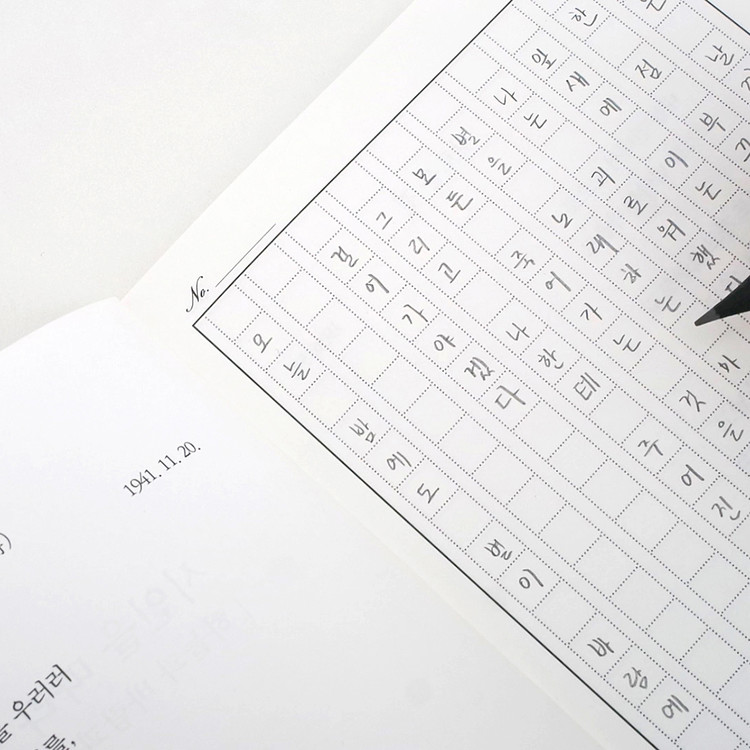 날
한 점 부
잎새에 이는
나는 괴로워했다
별을 노래하는 마
모든 죽어가는 것을
그리고 나한테 주어진
걸어가야겠다
오늘 밤에도 별이 바람에
No.
1941. 11. 20.
우러러
를,